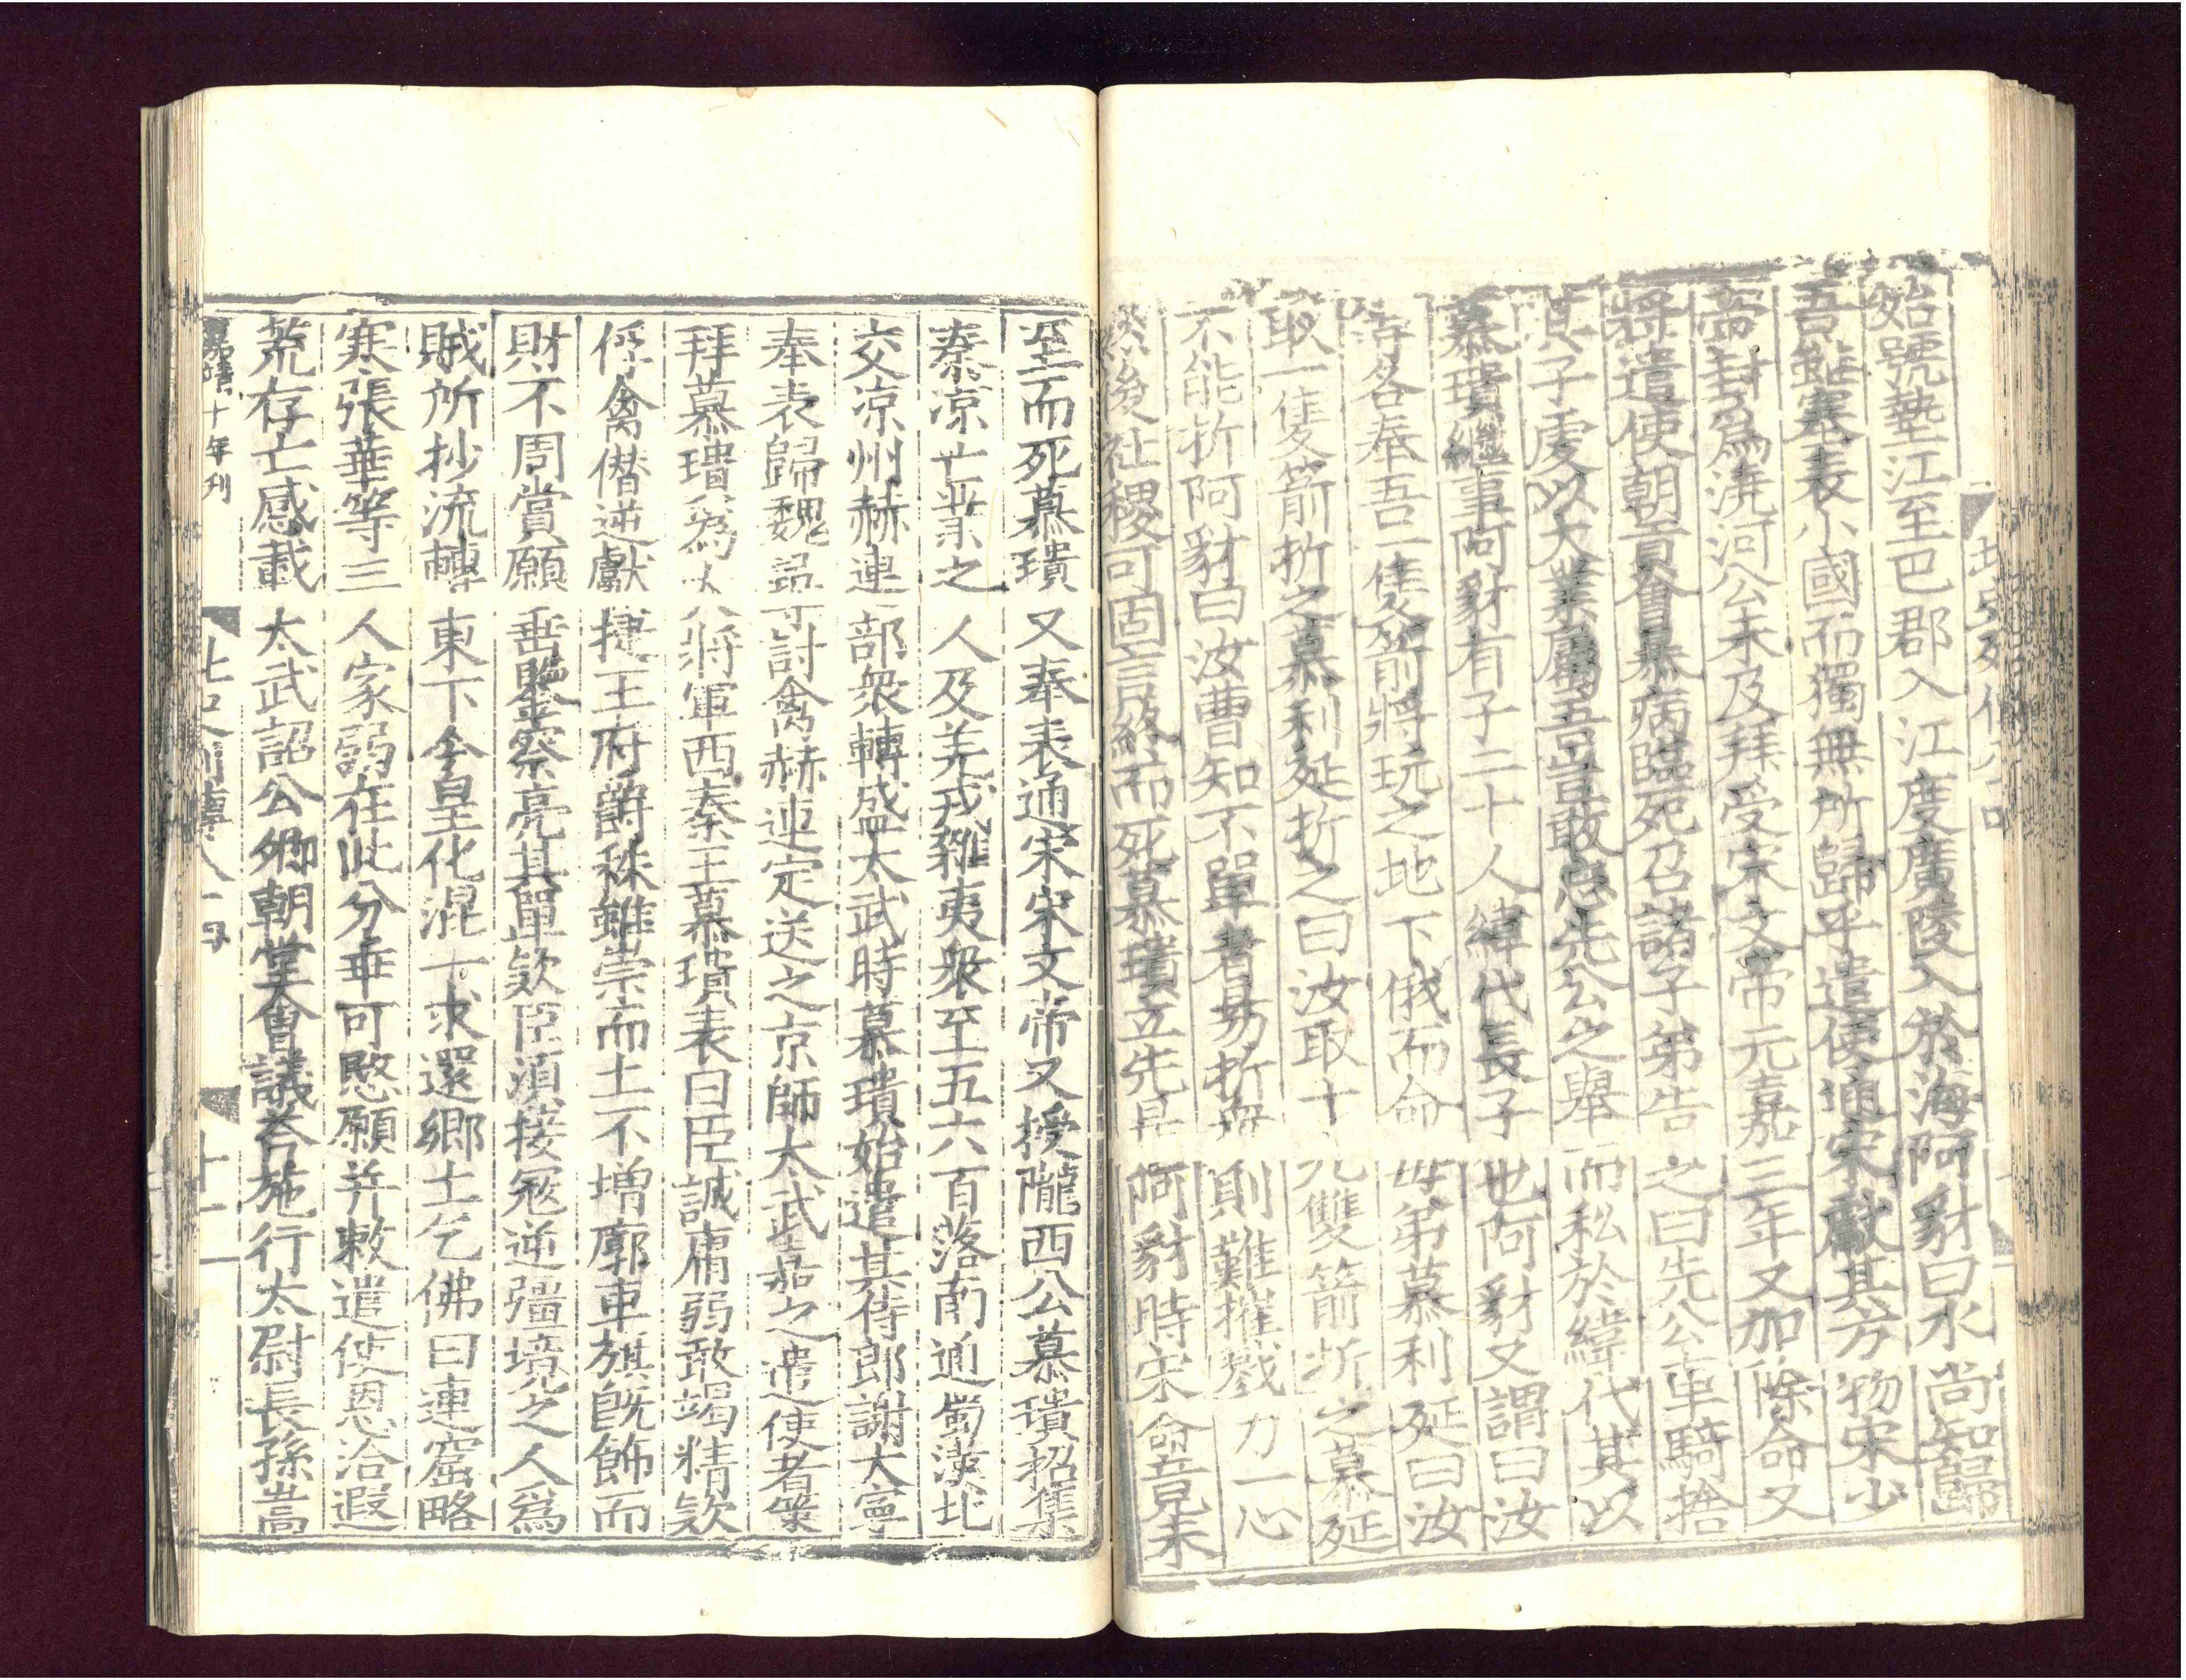 始號墊江至巴郡入江度廣陵入於海阿豺曰水尚知歸
吾雖塞表小國而獨無所歸乎遣使通宋獻其方物宋少
帝封爲澆河公未及拜受宋文帝元嘉三年又加除命又
將遣使朝貢會暴病臨死召諸子弟告之曰先公車騎捨
其子虔以大業屬吾豈敢忘先公之舉而私於緯代其以
慕璝繼事阿豺有子二十人緯代長子也阿豺又謂曰汝
等各奉吾一隻箭將玩之地下俄而命母弟慕利延曰汝
取一隻箭折之慕利延折之曰汝取十九雙箭折之慕延
不能折阿豺曰汝曹知不單者易折衆則難摧戮力一心
然後社稷可固言終而死慕璝立先是阿豺時宋命竟未
至而死慕璝又奉表通宋宋文帝又授隴西公慕璝招集
秦涼亡業之人及羌戎雜夷衆至五六百落南通蜀漢北
交涼州赫連部衆轉盛太武時慕璝始遣其侍郎謝大寧
奉表歸魏尋討禽赫連定送之京師太武嘉之遣使者策
拜慕璝爲大將軍西秦王慕璝表曰臣誠庸弱敢竭精款
俘禽僭逆獻捷王府爵秩雖崇而土不增廓車旗旣飾而
財不周賞願垂鑒察亮其單款臣頃接寇逆彊境之人爲
賊所抄流轉東下今皇化混一求還鄉土乞佛曰連窟略
寒張華等三人家弱在此分乖可愍願并敕遣使恩洽遐
荒存亡感載太武詔公卿朝堂會議荅施行太尉長孫嵩
嘉靖十年刊 北史列傳八十四 十一